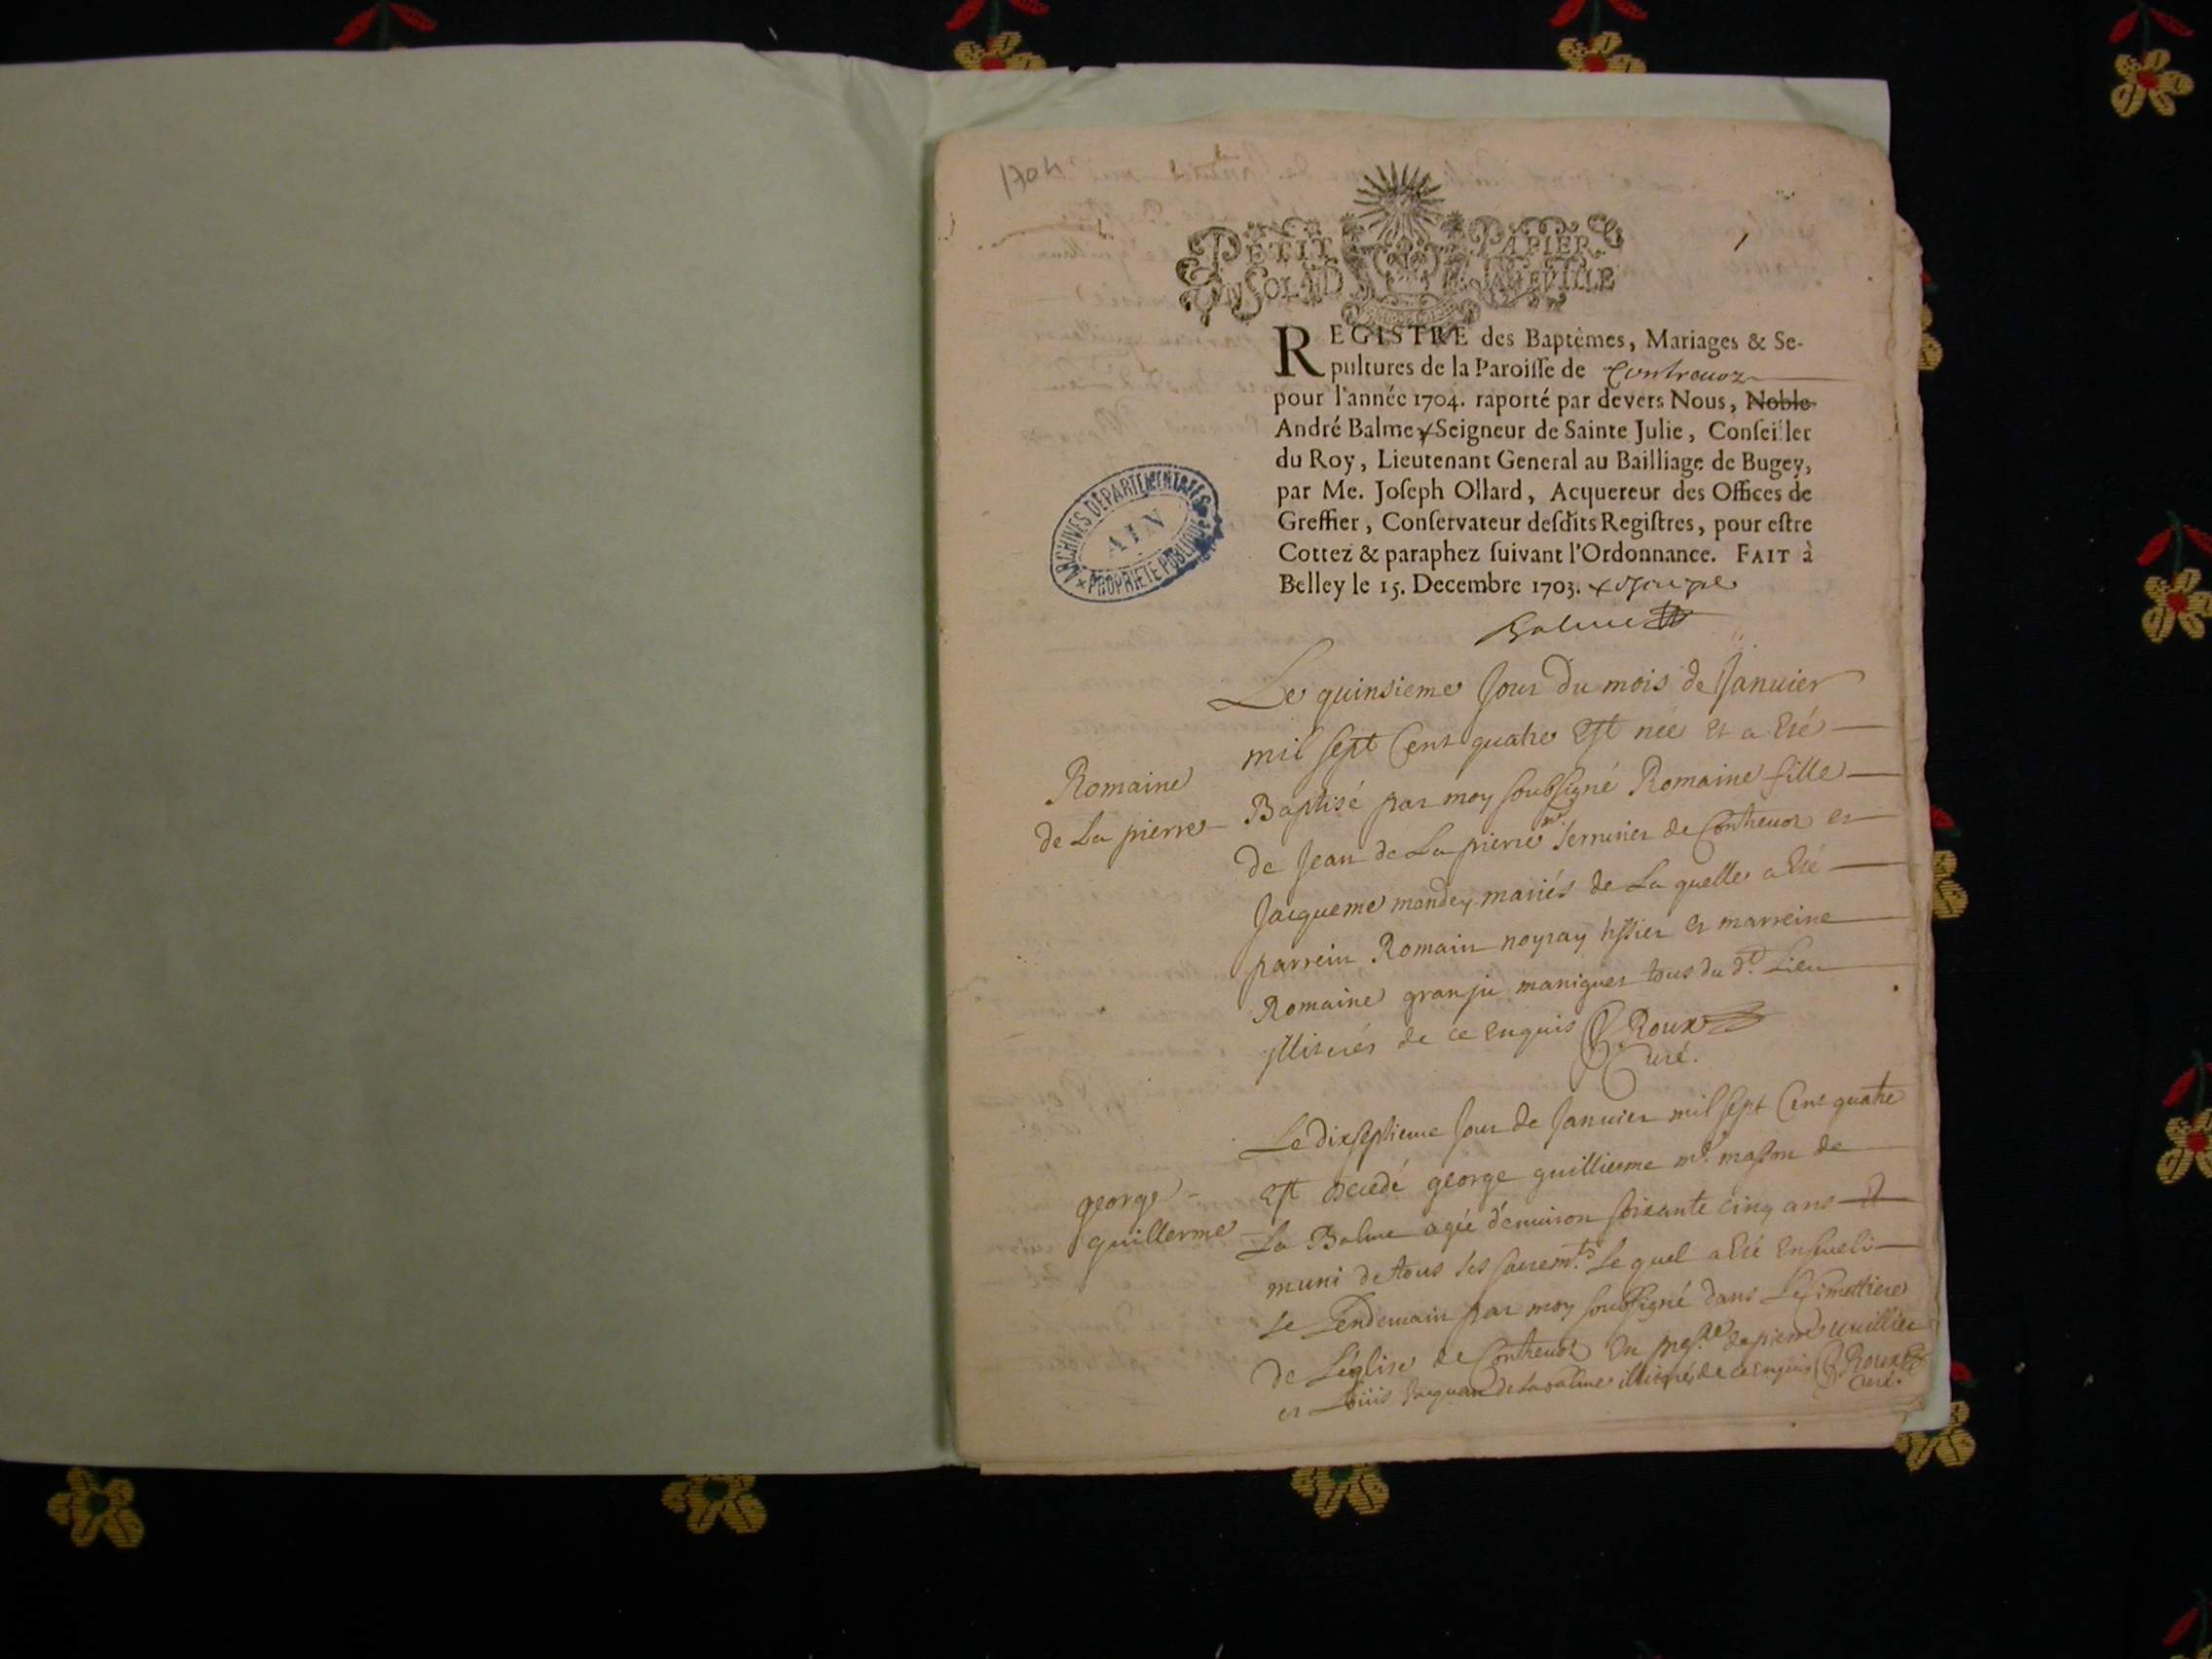 1704
PETIT PAPIER
UN SOL IIIID LA FEVILLE
1
REGISTRE des Baptêmes, Mariages & Se-
pultures de la Paroisse de Contrevoz
pour l'année 1704. raporté par devers Nous, Noble
André Balme, Seigneur de Sainte Julie, Conseiller
du Roy, Lieutenant General au Bailliage de Bugey,
par Me. Joseph Ollard, Acquereur des Offices de
Greffier, Conservateur desdits Registres, pour estre
Cottez & paraphez suivant l'Ordonnance. FAIT à
Belley le 15. Decembre 1703.
Balme
ARCHIVES DEPARTEMENTALES
AIN
PROPRIETE PUBLIQUE
Le quinsieme Jour du mois de Januier
mil sept Cent quatre Est née Et a Eté
Romaine
de La pierre
Baptisé par moy soubsigné Romaine fille
de Jean de La pierre me. serrurier de Contreuoz et
Jacqueme mandey mariés de La quelle a Eté
parrein Romain noyray tissier et marreine
Romaine granju maniguet tous du d. Lieu
illiterés de ce Enquis Roux
Curé.
Le dixseptieme Jour de Januier mil sept Cent quatre
george
guillerme
Est decedé george guillierme me. masson de
La Balme agée d'enuiron soixante cinq ans et
muni de tous ses sacremts. Le quel a Eté Enseueli
Le Lendemain par moy soubsigné dans Le simettiere
de L'église de Contreuoz En presce de pierre uuillier
et Loüis Jacquan de La balme illiterés de ce enquis Roux
Curé.